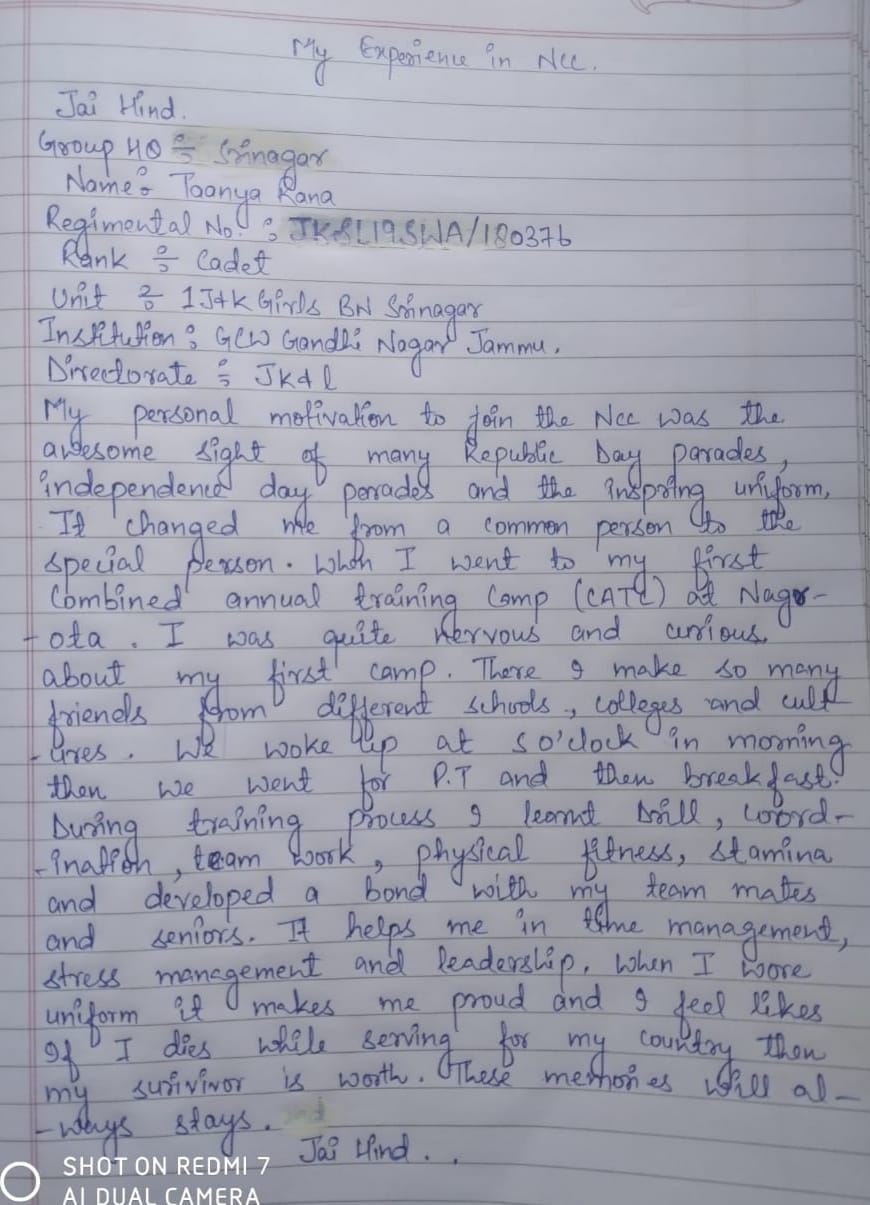 My Experience in Ncc.
Jai Hind.
Group HQ : Srinagar
Name : Taanya Rana
Regimental No. : JKSL19SWA/180376
Rank : Cadet
Unit : 1J+K Girls BN Srinagar
Institution : GCW Gandhi Nagar Jammu.
Directorate : JK&L
My personal motivation to join the Ncc was the
awesome sight of many Republic Day parades,
independence day parades and the inspring uniform,
It changed me from a common person to the
special person. When I went to my first
Combined annual training Camp (CATC) at Nagr-
-ota. I was quite nervous and curious
about my first camp. There I make so many
friends from different schools, colleges and cult
-ures. We woke up at 5 o'clock in morning
then we went for P.T and then breakfast.
During training process I learnt Drill, coord-
-ination, team work, physical fitness, stamina
and developed a bond with my team mates
and seniors. It helps me in time management,
stress management and leadership. When I wore
uniform it makes me proud and I feel likes
If I dies while serving for my country then
my surivivor is worth. These memories will al-
-ways stays.
Jai Hind..
SHOT ON REDMI 7
AI DUAL CAMERA